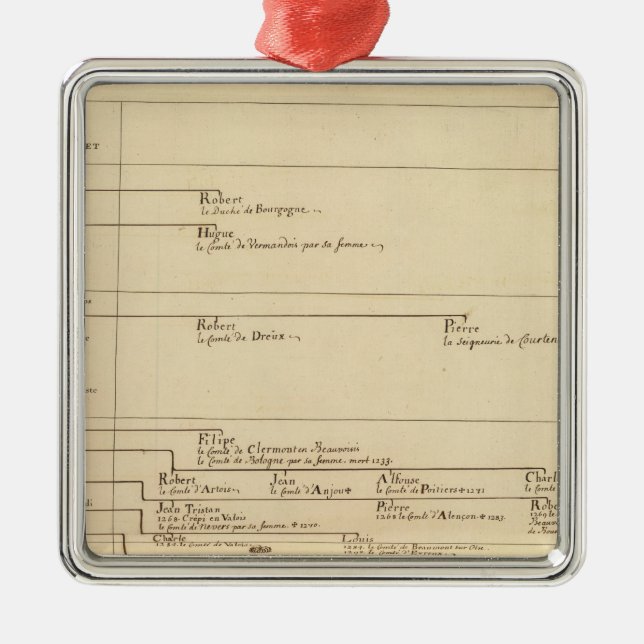 ET
Robert
le Duché de Bourgogne
Hugue
le Comté de Vermandois par sa femme
Robert
le Comté de Dreüx
Pierre
la seigneurie de Courten
ste
Filipe
le Comté de Clermont en Beauvoisis
le Comté de Bologne par sa femme. mort 1233.
Robert
le Comté d'Artois
Jean
le Comté d'Anjou ✝
Alfonse
le Comté de Poitiers ✝ 1271
Charl
le Comté
di
Jean Tristan
1268. Crépi en Valois
le Comté de Nevers par sa femme. ✝ 1270.
Pierre
1268 le Comté d'Alençon. ✝ 1283.
Robe
1269 le
Beauvo
Charle
le Comté de Valois
Louis
le Comté de Beaumont sur Oise.
le Comté d'Evreux